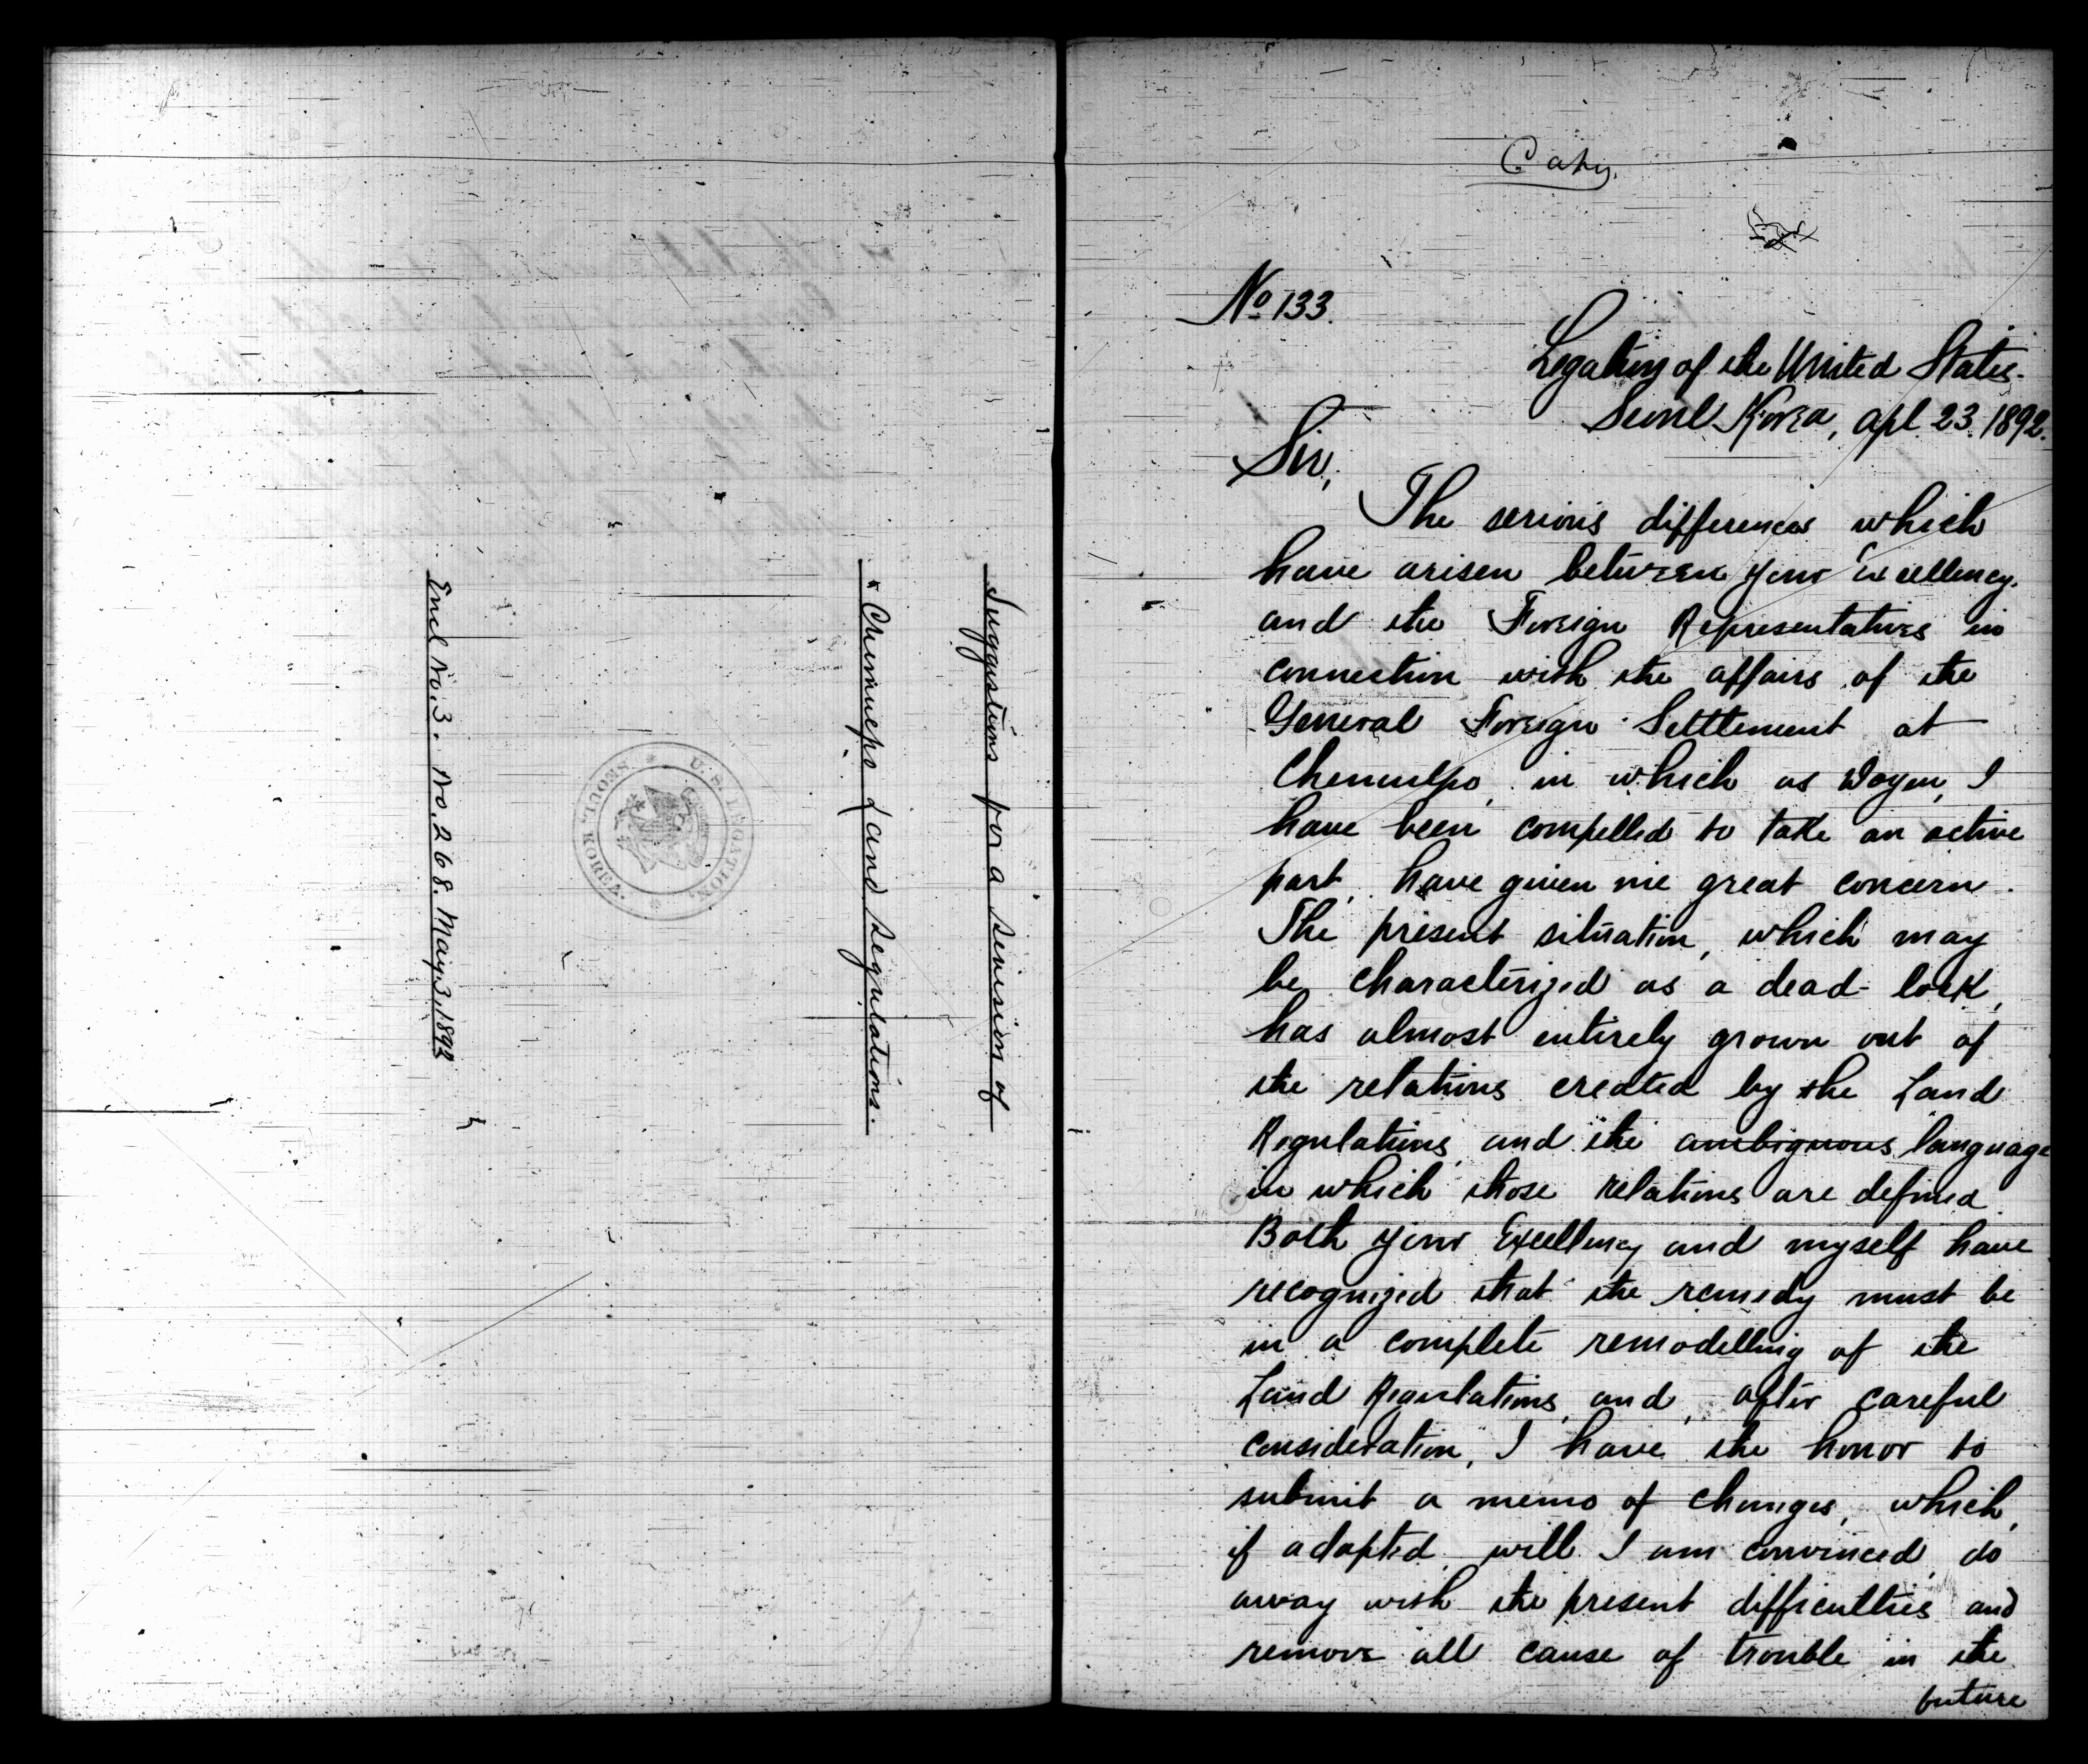 Suggestions for a revision of
" Chemuepo Land regulations.
U. S. LEGATION,
SEOUL, KOREA.
Encl No. 3. No. 268. May. 3. 1892
Copy.
No 133.
Legation of the United States.
Seoul Korea, apl 23. 1892.
Sir,
The serious differences which
have arisen between your Excellency,
and the Foreign Representatives in
connection with the affairs of the
General Foreign Settlement at
Chemulpo, in which as Doyen, I
have been compelled to take an active
part, have given me great concern.
The present situation, which may
be characterized as a dead-lock,
has almost entirely grown out of
the relations created by the Land
Regulations, and the ambiguous language
in which those relations are defined.
Both your Excellency and myself have
recognized that the remedy must be
in a complete remodelling of the
Land Regulations, and, after careful
consideration, I have the honor to
submit a memo of changes, which,
if adopted, will I am convinced, do
away with the present difficulties and
remove all cause of trouble in the
future